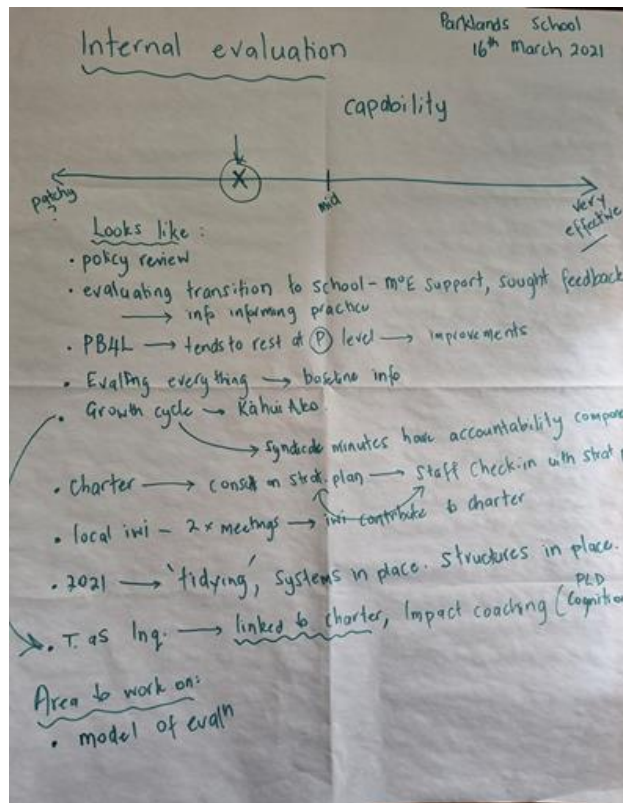 Parklands School
16th March 2021
Internal evaluation
capability
X
patchy
mid
very
effective
Looks like :
• policy review
• evaluating transition to school - MOE support, sought feedback
→ info informing practice
• PB4L → tends to rest at P level → improvements
• Evalling everything → baseline info
• Growth cycle → Kāhui Ako.
→ Syndicate minutes have accountability
• Charter → consult on strat. plan → Staff check-in with strat
• local iwi - 2x meetings → iwi contribute to charter
• 2021 → 'tidying', systems in place. Structures in place.
PLD
• T. as Inq. → linked to charter, Impact coaching (Cognition
Area to work on:
• model of evaln